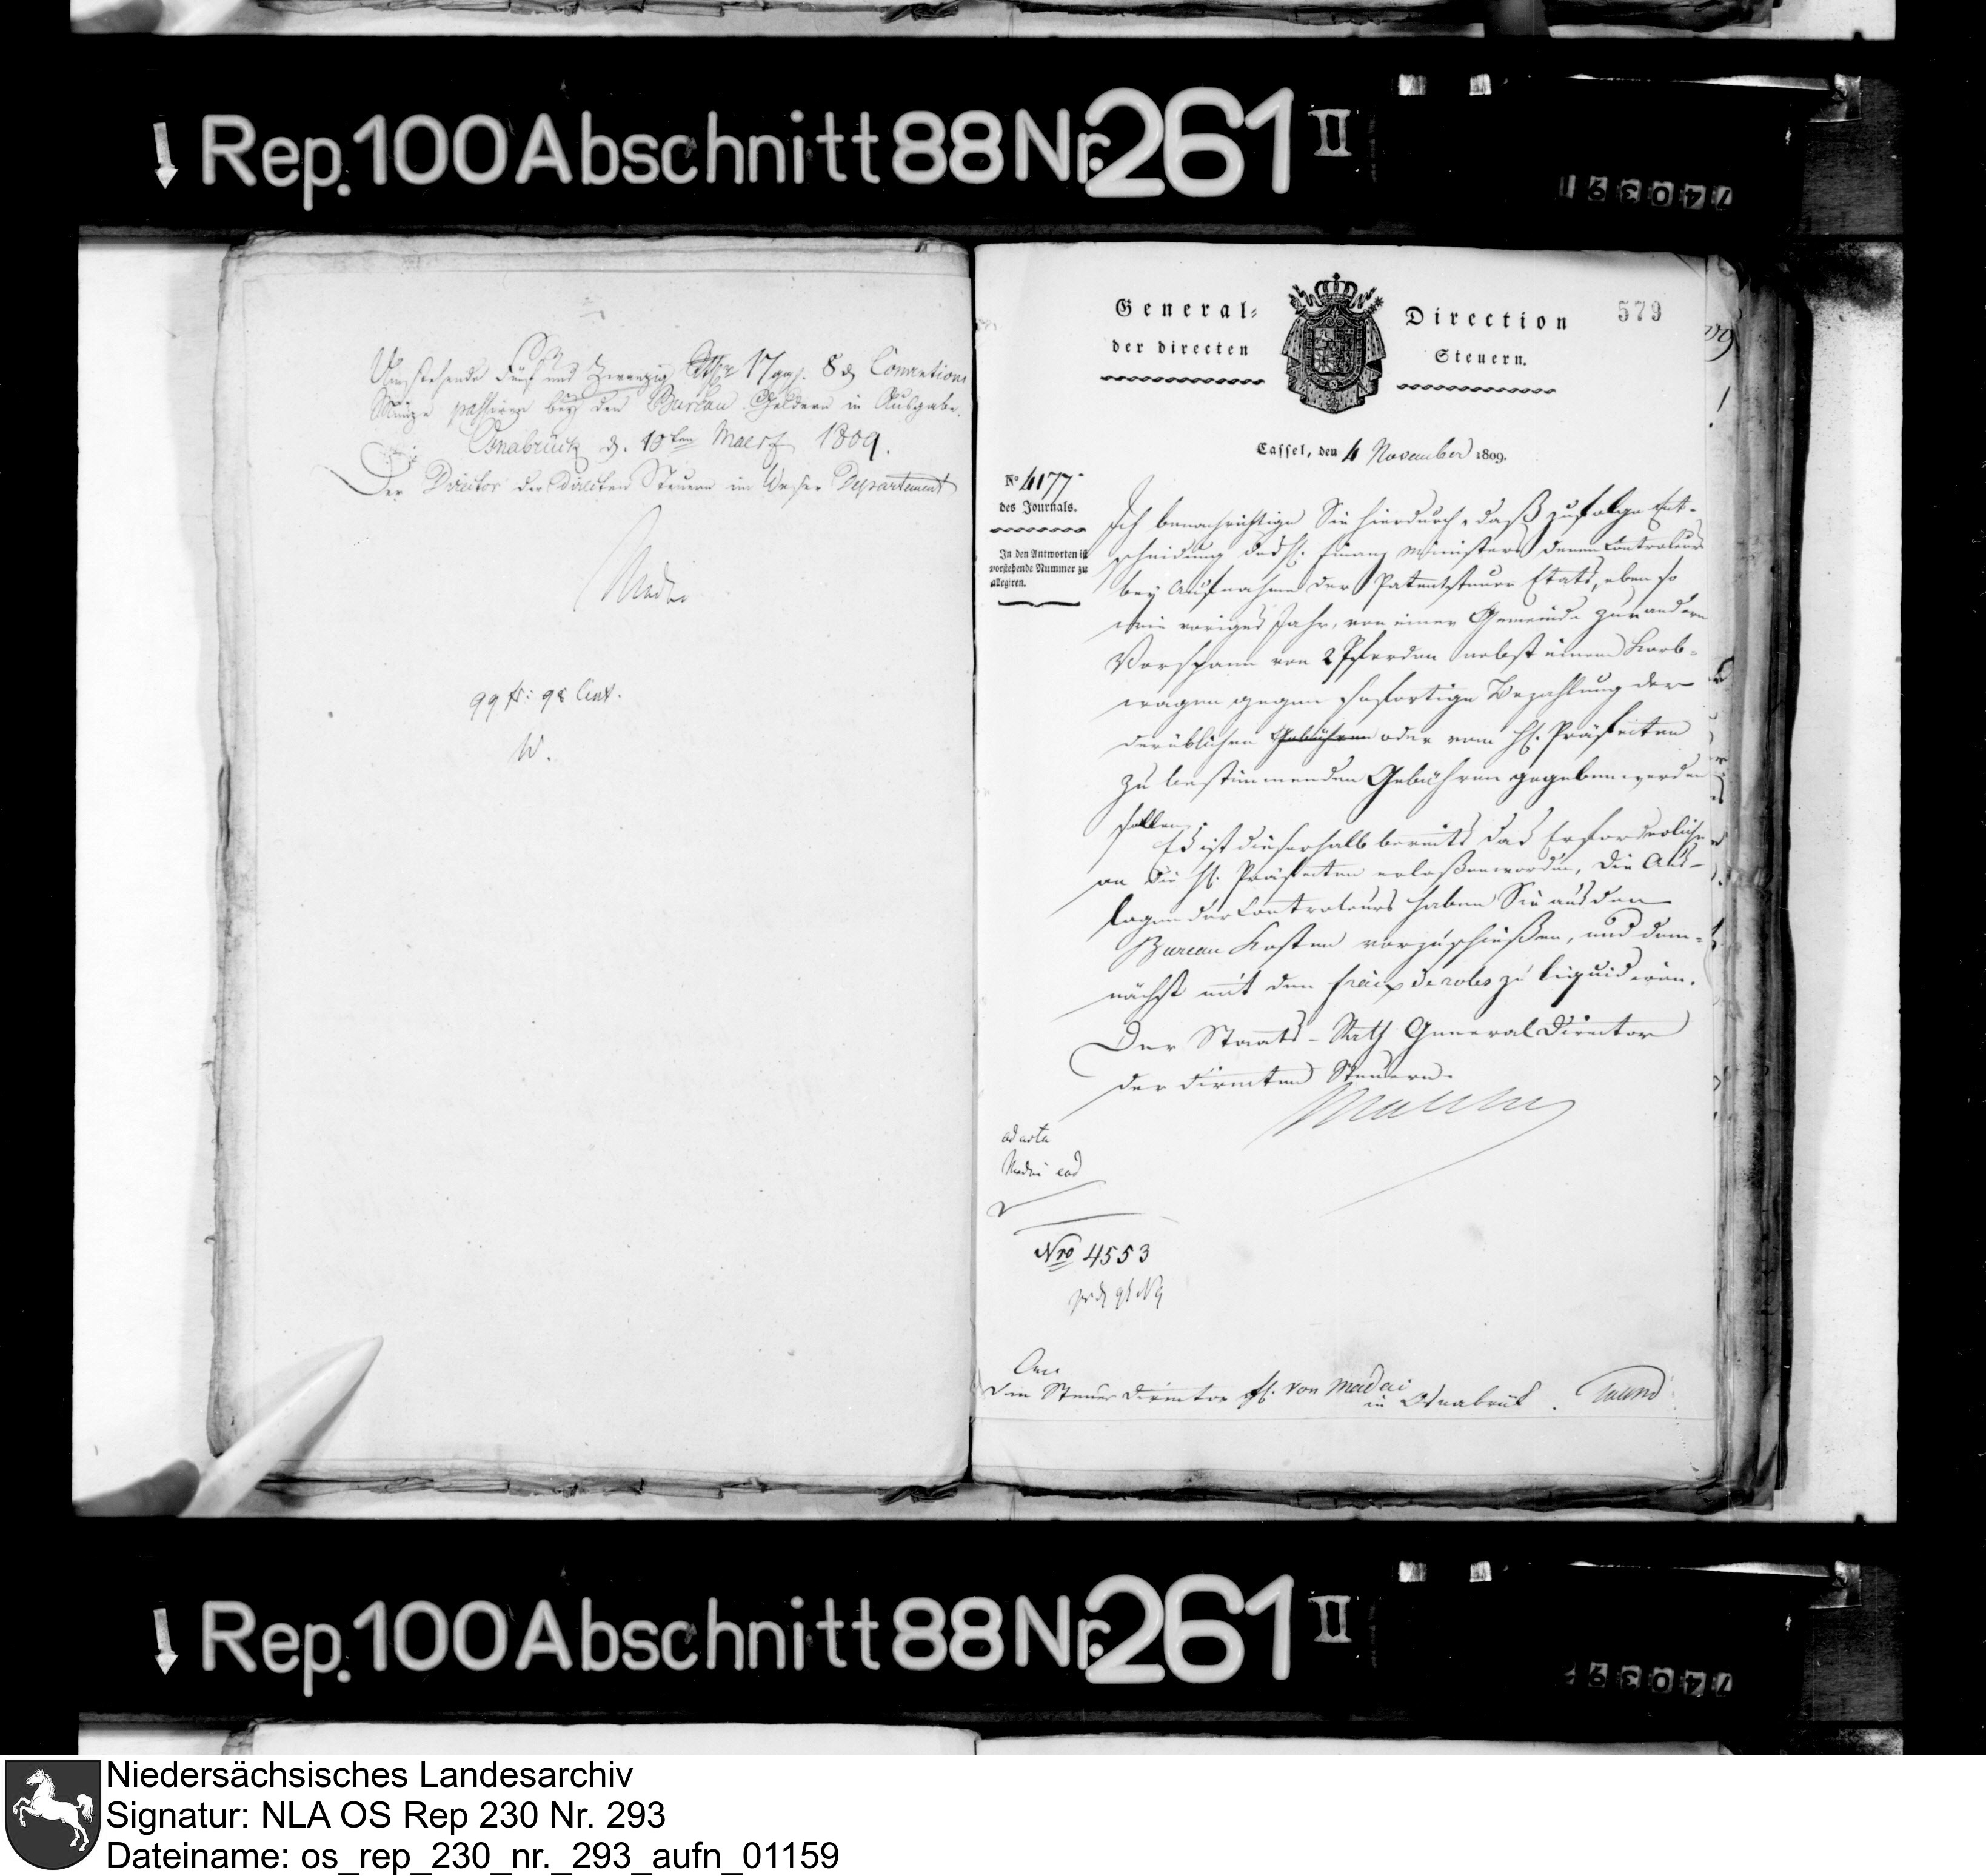 Rep. 100 Abschnitt 88 Nr. 261 II
740391
Umstehende Fünf und Zwanzig 17 ggr. 8 d Conventions
Münze passiren bey den Bureau Geldern in Ausgabe.
Osnabrück d. 10ten Maerz 1809.
Der Director der directen Steuern im Weser Departement
Madai
99 fr: 98 Cent.
W.
579
General-Direction
der directen Steuern.
Cassel, den 4 November 1809.
No 4177
des Journals.
In den Antworten ist
vorstehende Nummer zu
allegiren.
Ich benachrichtige Sie hierdurch, daß zufolge Ent-
scheidung des H. Finanz Ministers denen Controleurs
bey Aufnahme der Patentsteuer Etats, eben so
wie voriges Jahr, von einer Gemeinde zur andern
Vorspann von 2 Pferden nebst einem Korb-
wagen gegen sofortige Bezahlung der
derüblichen Gebühren oder vom H. Präfecten
zu bestimmenden Gebühren gegeben werden
sollen.
Es ist dieserhalb bereits das Erforderliche
an die H. Präfecten erlaßen worden, die Aus-
lagen der Controleurs haben Sie aus den
Bureau Kosten vorzuschießen, und dem-
nächst mit den fraix de roles zu liquidiren.
Der Staats-Rath General Director
der directen Steuern.
Malchus
ad acta
Madai eod
Nro 4553
An
den Steuer Director H. von Madai
in Osnabrück.
Rep. 100 Abschnitt 88 Nr. 261 II
Niedersächsisches Landesarchiv
Signatur: NLA OS Rep 230 Nr. 293
Dateiname: os_rep_230_nr._293_aufn_01159